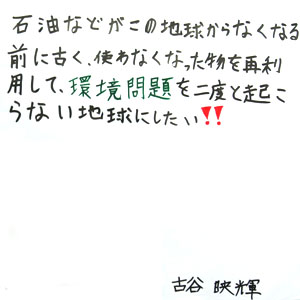 石油などがこの地球からなくなる
前に古く、使わなくなった物を再利
用して、環境問題を二度と起こ
らない地球にしたい!!
古谷 映輝